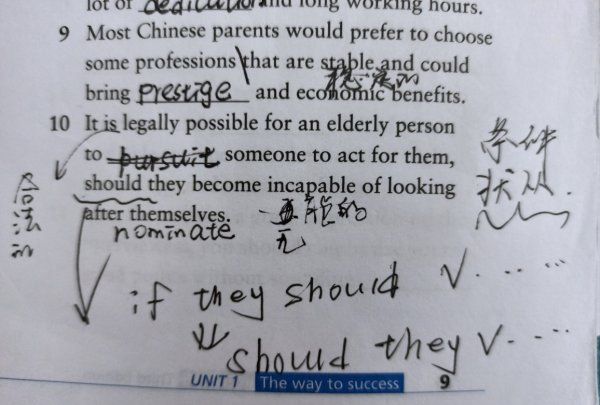 lot of dedication and long working hours.
9 Most Chinese parents would prefer to choose
some professions that are stable and could
稳定的
bring prestige and economic benefits.
10 It is legally possible for an elderly person
to pursuit someone to act for them,
条件
should they become incapable of looking
状从.
合法的
after themselves.
无能的
nominate
if they should V. .. ...
should they V. ....
UNIT 1 The way to success 9